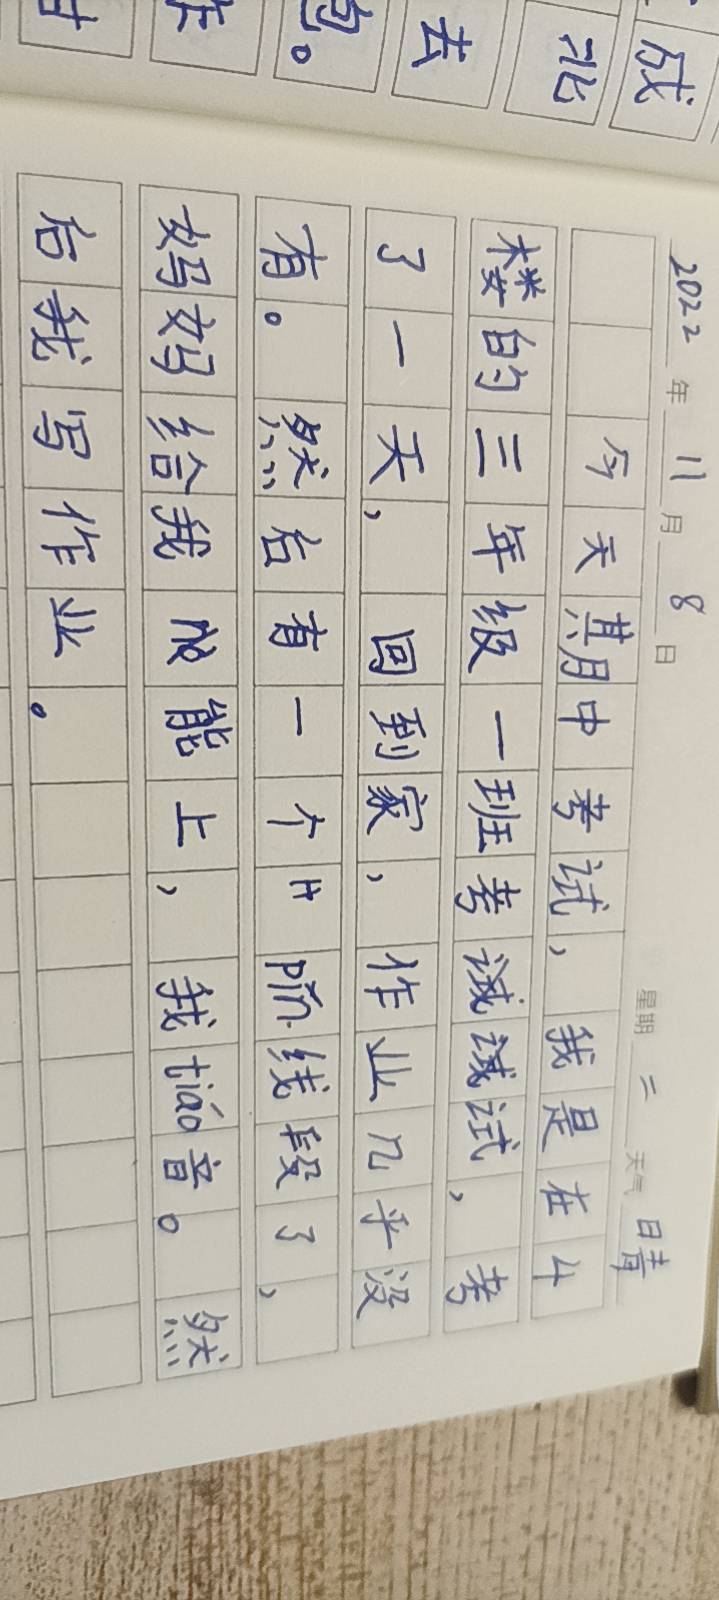 2022年11月8日 星期二 天气晴
今天期中考试，我是在4
楼的三年级一班考诚诚试、考
了一天，回到家，作业几乎没
有。然后有一个 pīn线段了，
妈妈给我 能上，我tiáo音。然
后我写作业。
成
北
去
包。
作